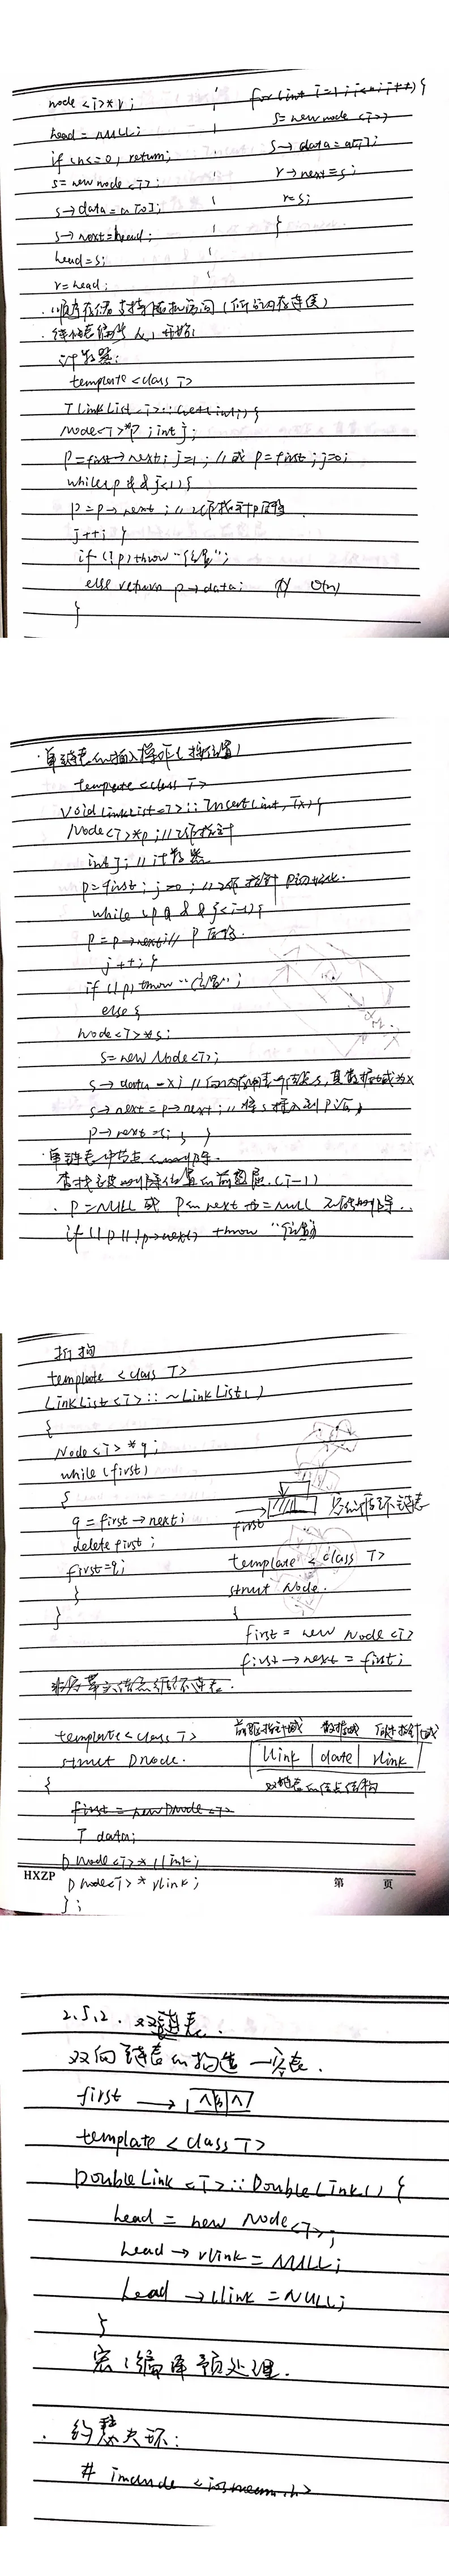 node<T>* r;
head = NULL;
if (n<=0) return;
s = new node<T>;
s→data = a[0];
s→next = head;
head = s;
r = head;
for (int i=1; i<n; i++) {
s = new node<T>
s→data = a[i];
r→next = s;
r = s;
}
·顺序存储支持随机访问(所占内存连续)
计数器:
template <class T>
T LinkList<T>::Get(int i) {
Node<T>*p; int j;
p = first→next; j=1; // 或 p=first; j=0;
while (p && j<i) {
p = p→next; // 工作指针p后移
j++; }
if (!p) throw "位置";
else return p→data; O(n)
}
·单链表的插入操作(按位置)
template <class T>
Void LinkList<T>::Insert(int, T x) {
Node<T>*p; // 工作指针
int j; // 计数器
p = first; j=0; // 工作指针p初始化.
while (p && j<i-1) {
p = p→next; // p后移.
j++; }
if (!p) throw "位置";
else {
Node<T>*s;
s = new Node<T>;
s→data = x; // 向内存申请一个结点s,其数据域为x
s→next = p→next; // 将s插入到p之后
p→next = s; }
·单链表中节点的删除.
查找被删除位置的前驱层.(i-1)
·p=NULL 或 p的next =NULL 不能删除..
if (!p || !p→next) throw "位置"
析构
template <class T>
LinkList<T>::~LinkList()
{
Node<T>*q;
while (first)
{
q = first→next;
delete first;
first=q;
}
}
first 空的循环链表
template <class T>
struct Node.
{
first = new Node<T>
first→next = first;
template <class T>
struct Dnode.
{
first = new Dnode<T>
T data;
Dnode<T>* llink;
Dnode<T>* rlink;
};
前驱指针域 数据域 后继指针域
llink | date | rlink
双链表的结点结构
HXZP 第 页
2.5.2. 双链表.
双向链表的构造—空表.
first → |∧| |∧|
template <class T>
DoubleLink <T>::DoubleLink() {
head = new Node<T>;
head→rlink = NULL;
head→llink = NULL;
}
宏:编译预处理.
·约瑟夫环:
# include <iostream.h>